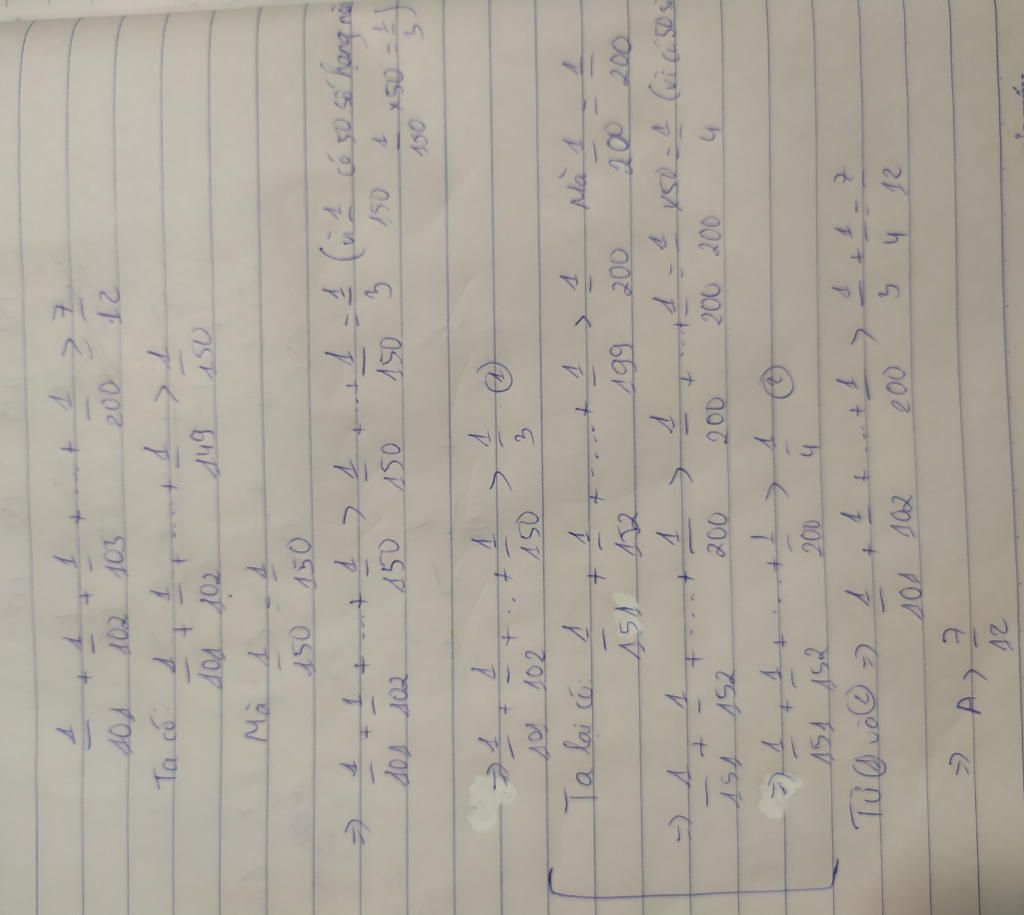 1/101 + 1/102 + 1/103 + .... + 1/200 > 7/12
Ta có: 1/101 + 1/102 + ..... + 1/149 > 1/150
Mà 1/150 = 1/150
=> 1/101 + 1/102 + .... + 1/150 > 1/150 + .... + 1/150 = 1/3 (vì 1/150 có 50 số hạng nên
1/150 x50 = 1/3)
=> 1/101 + 1/102 + ... + 1/150 > 1/3 ①
Ta lại có: 1/151 + 1/152 + ..... + 1/199 > 1/200 Mà 1/200 = 1/200
=> 1/151 + 1/152 + ..... + 1/200 > 1/200 + .... + 1/200 = 1/200 x50 = 1/4 (vì có 50 số
=> 1/151 + 1/152 + .... + 1/200 > 1/4 ②
Từ ① và ② => 1/101 + 1/102 + .... + 1/200 > 1/3 + 1/4 = 7/12
=> A > 7/12